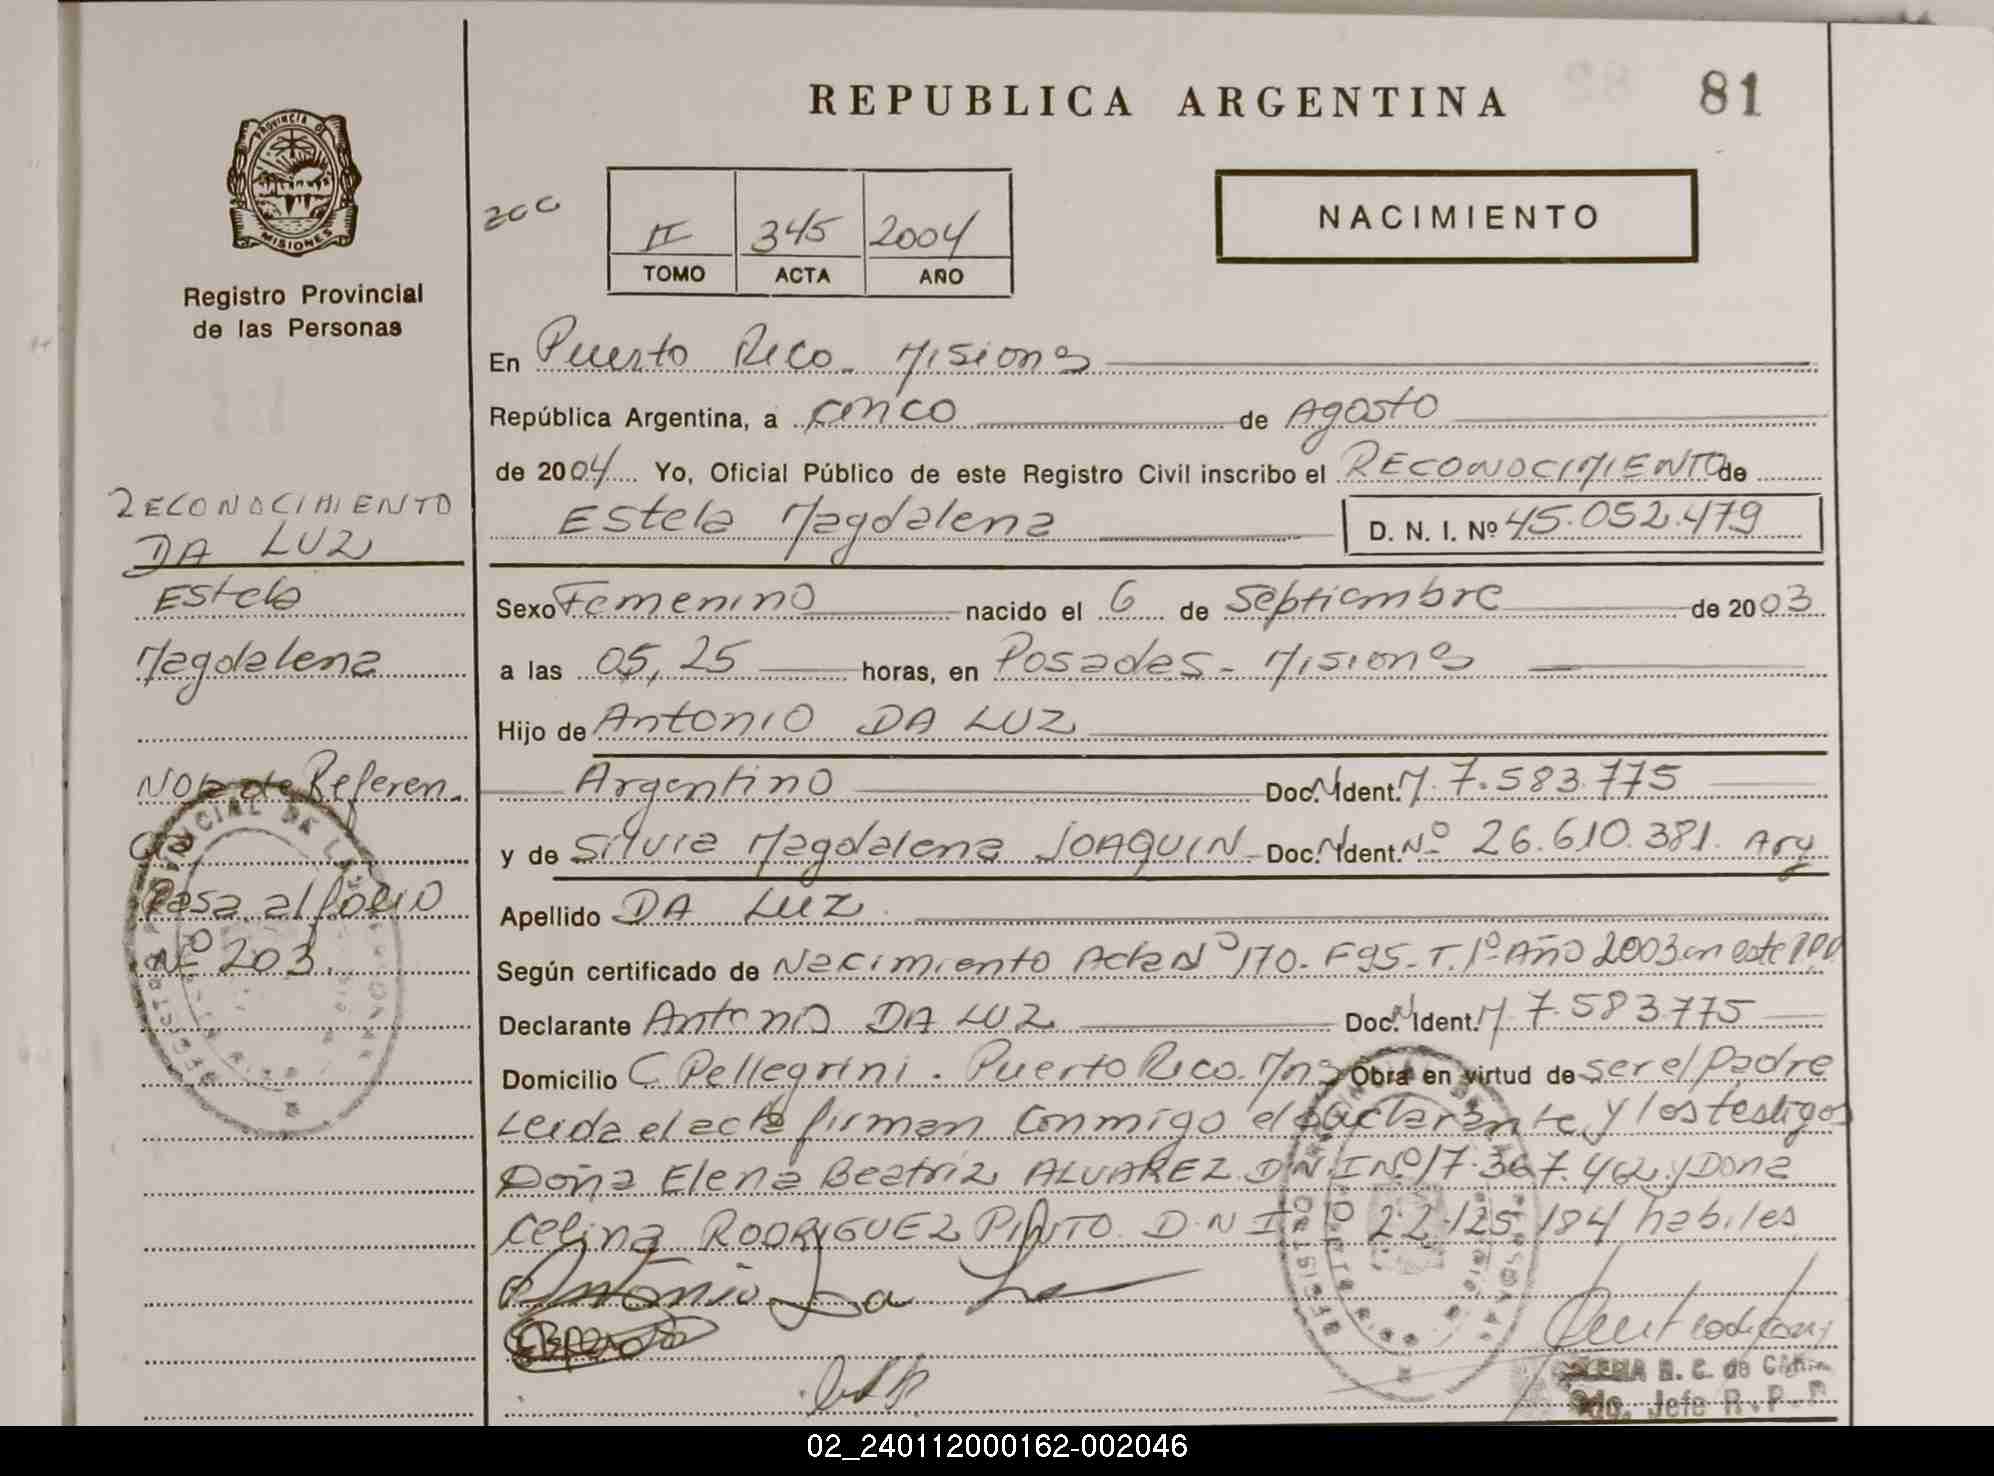 REPUBLICA ARGENTINA
81
PROVINCIA D
MISIONES
Registro Provincial
de las Personas
200
II 345 2004
TOMO ACTA AÑO
NACIMIENTO
En Puerto Rico - Misiones
República Argentina, a cinco de Agosto
de 2004 Yo, Oficial Público de este Registro Civil inscribo el RECONOCIMIENTO de
Estela Magdalena D. N. I. Nº 45.052.479
RECONOCIMIENTO
DA LUZ
Estela
Magdalena
Nota de Referen.
cia
Pasa al folio
Nº 203.
Sexo Femenino nacido el 6 de Septiembre de 2003
a las 05,25 horas, en Posadas - Misiones
Hijo de Antonio DA LUZ
Argentino Doc. Nº Ident. M. 7.583.775
y de Silvia Magdalena JOAQUIN Doc. Nº Ident. Nº 26.610.381. Arg
Apellido DA LUZ
Según certificado de Nacimiento Acta Nº 170. F 95. T. 1º. Año 2003 en este
Declarante Antonio DA LUZ Doc. Nº Ident. M 7.583.775
Domicilio C Pellegrini. Puerto Rico. Mnes Obra en virtud de ser el padre
Leida el acta firman conmigo el declarante y los testigos
Doña Elena Beatriz ALVAREZ D.N.I Nº 17.367.462 y Doña
Celina RODRIGUEZ PINTO D.N I Nº 22.125.184 habiles
Antonio Da Lu
Jefe R.P.P
02_240112000162-002046